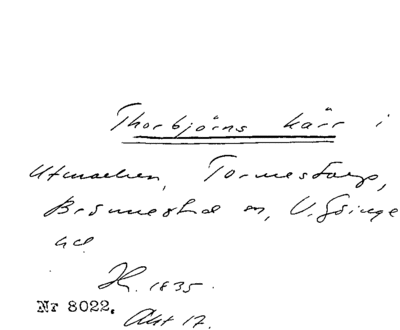 Thorbjörns kärr i
Utmarken, Tormestorp,
Brönnestad sn, V. Göinge
hd.
H. 1835.
Nr 8022.
Akt 17.